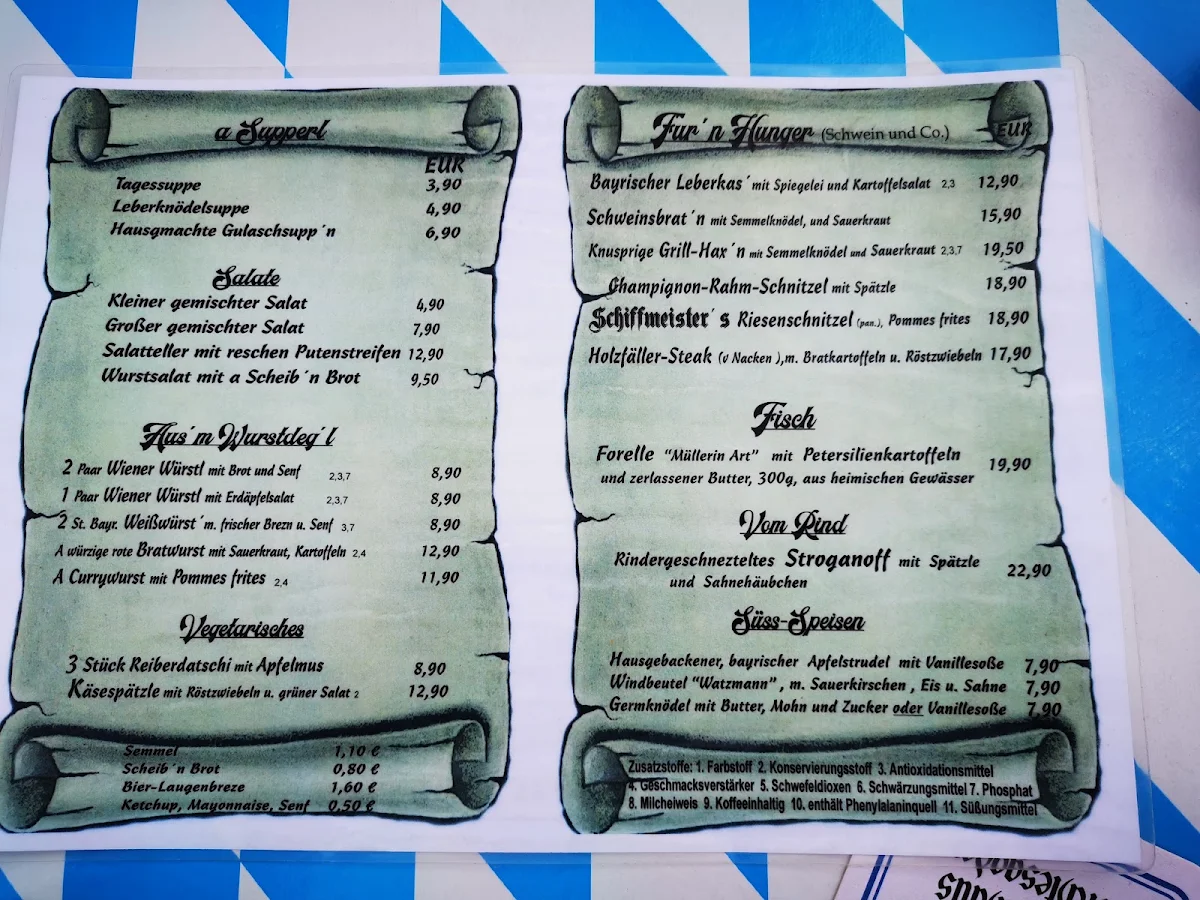 a Supperl
EUR
Tagessuppe 3,90
Leberknödelsuppe 4,90
Hausgmachte Gulaschsupp´n 6,90
Salate
Kleiner gemischter Salat 4,90
Großer gemischter Salat 7,90
Salatteller mit reschen Putenstreifen 12,90
Wurstsalat mit a Scheib´n Brot 9,50
Aus´m Wurstdeg´l
2 Paar Wiener Würstl mit Brot und Senf 2,3,7 8,90
1 Paar Wiener Würstl mit Erdäpfelsalat 2,3,7 8,90
2 St. Bayr. Weißwürst´m. frischer Brezn u. Senf 3,7 8,90
A würzige rote Bratwurst mit Sauerkraut, Kartoffeln 2,4 12,90
A Currywurst mit Pommes frites 2,4 11,90
Vegetarisches
3 Stück Reiberdatschi mit Apfelmus 8,90
Käsespätzle mit Röstzwiebeln u. grüner Salat 2 12,90
Semmel 1,10 €
Scheib´n Brot 0,80 €
Bier-Laugenbreze 1,60 €
Ketchup, Mayonnaise, Senf 0,50 €
Fur´n Hunger (Schwein und Co.) EUR
Bayrischer Leberkas´mit Spiegelei und Kartoffelsalat 2,3 12,90
Schweinsbrat´n mit Semmelknödel, und Sauerkraut 15,90
Knusprige Grill-Hax´n mit Semmelknödel und Sauerkraut 2,3,7 19,50
Champignon-Rahm-Schnitzel mit Spätzle 18,90
Schiffmeister´s Riesenschnitzel (pan.), Pommes frites 18,90
Holzfäller-Steak (v Nacken ),m. Bratkartoffeln u. Röstzwiebeln 17,90
Fisch
Forelle "Müllerin Art" mit Petersilienkartoffeln
und zerlassener Butter, 300g, aus heimischen Gewässer 19,90
Vom Rind
Rindergeschnezteltes Stroganoff mit Spätzle
und Sahnehäubchen 22,90
Süss-Speisen
Hausgebackener, bayrischer Apfelstrudel mit Vanillesoße 7,90
Windbeutel "Watzmann" , m. Sauerkirschen , Eis u. Sahne 7,90
Germknödel mit Butter, Mohn und Zucker oder Vanillesoße 7,90
Zusatzstoffe: 1. Farbstoff 2. Konservierungsstoff 3. Antioxidationsmittel
4. Geschmacksverstärker 5. Schwefeldioxen 6. Schwärzungsmittel 7. Phosphat
8. Milcheiweis 9. Koffeeinhaltig 10. enthält Phenylalaninquell 11. Süßungsmittel